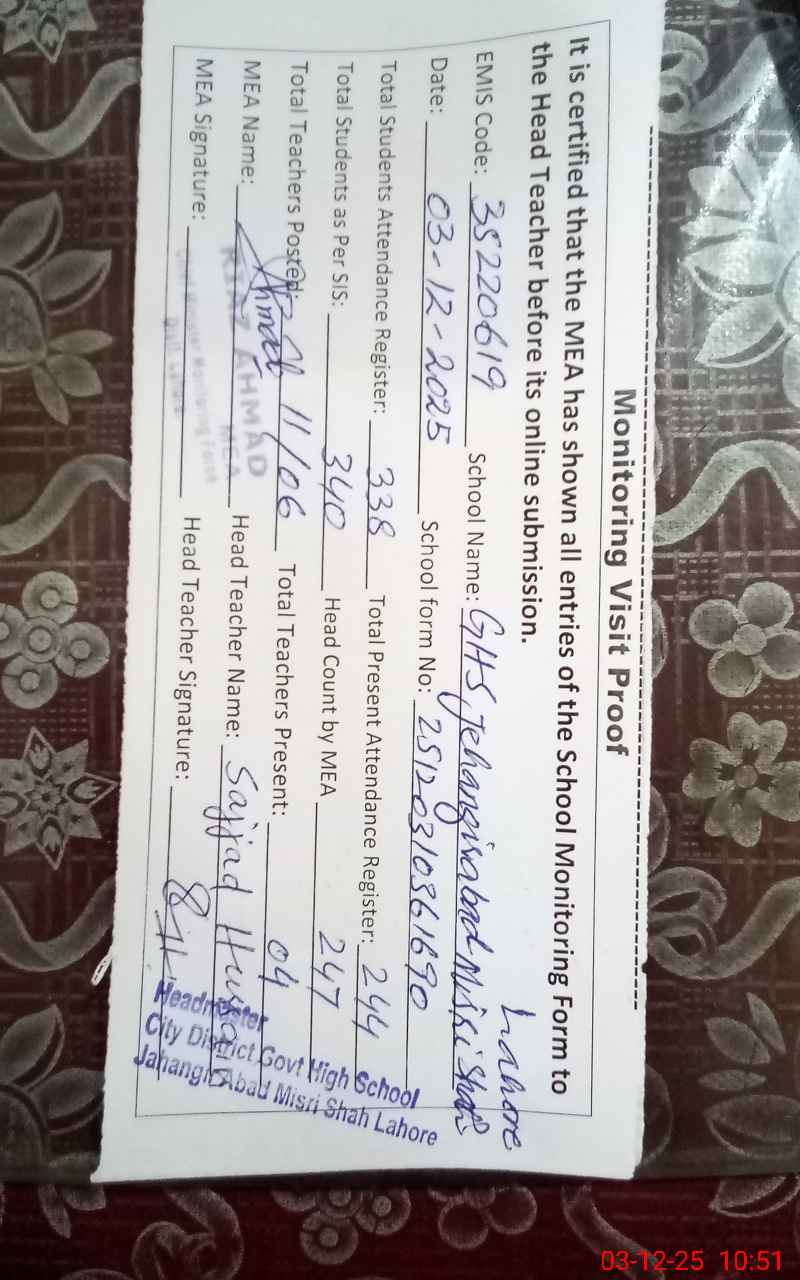 Monitoring Visit Proof
It is certified that the MEA has shown all entries of the School Monitoring Form to
the Head Teacher before its online submission.
EMIS Code: 35220619 School Name: GHS, Jehangirabad Misri Shah Lahore
Date: 03-12-2025 School form No: 25120310861690
Total Students Attendance Register: 338 Total Present Attendance Register: 244
Total Students as Per SIS: 340 Head Count by MEA 247
Total Teachers Posted: 11/06 Total Teachers Present: 04
MEA Name: Ahmad Head Teacher Name: Sajjad Hussain
RIAZ AHMAD
MEA
Chief Minister Monitoring Force
Distt. Lahore
MEA Signature: Head Teacher Signature:
Headmaster
City District Govt High School
Jahangir Abad Misri Shah Lahore
03-12-25 10:51